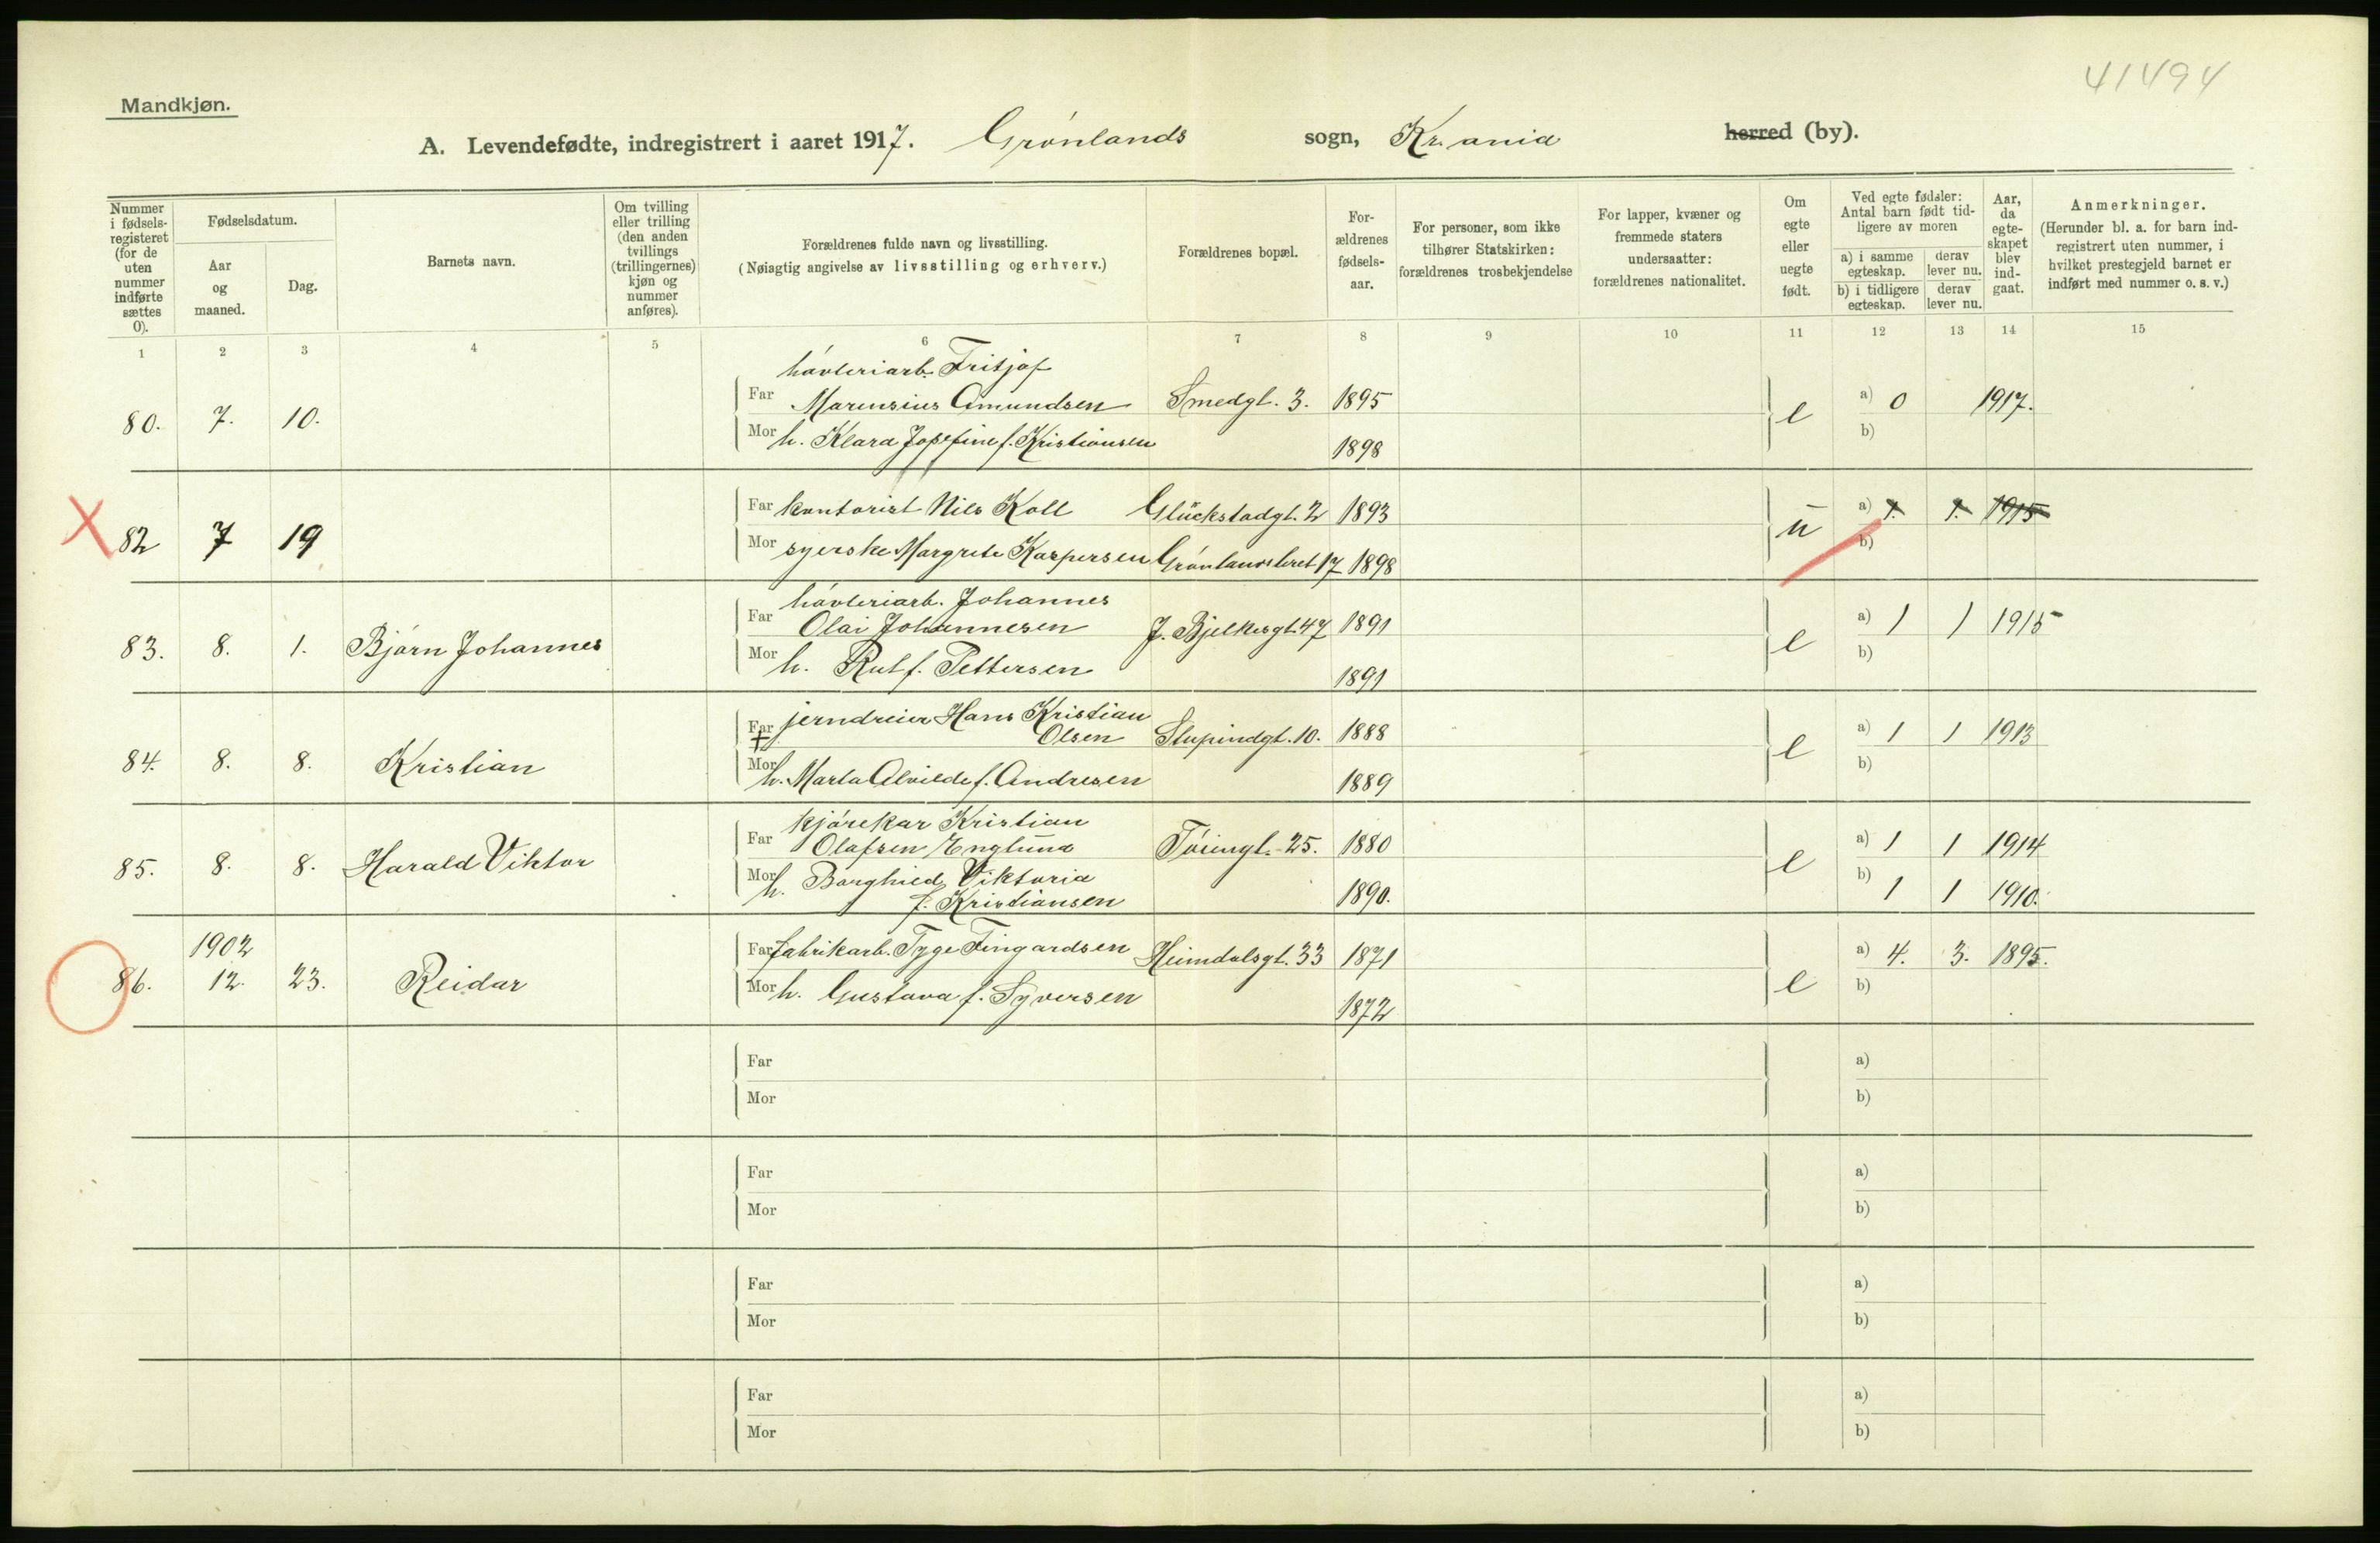 41494
Mandkjøn.
A. Levendefødte, indregistrert i aaret 1917. Grønlands sogn, Kr.ania herred (by).
Nummer i fødsels-registeret (for de uten nummer indførte sættes 0).
Fødselsdatum.
Aar og maaned.
Dag.
Barnets navn.
Om tvilling eller trilling (den anden tvillings (trillingernes) kjøn og nummer anføres).
Forældrenes fulde navn og livsstilling.
(Nøiagtig angivelse av livsstilling og erhverv.)
Forældrenes bopæl.
For-ældrenes fødsels-aar.
For personer, som ikke tilhører Statskirken: forældrenes trosbekjendelse
For lapper, kvæner og fremmede staters undersaatter: forældrenes nationalitet.
Om egte eller uegte født.
Ved egte fødsler: Antal barn født tid-ligere av moren
a) i samme egteskap.
derav lever nu.
b) i tidligere egteskap.
derav lever nu.
Aar, da egte-skapet blev ind-gaat.
Anmerkninger.
(Herunder bl. a. for barn ind-registrert uten nummer, i hvilket prestegjeld barnet er indført med nummer o. s. v.)
1 2 3 4 5 6 7 8 9 10 11 12 13 14 15
høvleriarb. Fritjof
80. 7. 10. Far Marensius Amundsen Smedgt. 3. 1895 e a) 0 1917.
Mor h. Klara Josefine f. Kristiansen 1898 b)
82 7 19 Far kontorist Nils Koll Glückstadgt. 2 1893 u a) 1. 1. 1915
Mor syerske Margrete Kaspersen Grønlandsleret 17 1898 b)
høvleriarb. Johannes
83. 8. 1. Bjørn Johannes Far Olai Johannesen J. Bjelkesgt. 47 1891 e a) 1 1 1915
Mor h. Rut f. Pettersen 1891 b)
84. 8. 8. Kristian Far jerndreier Hans Kristian
Olsen Stupindgt. 10. 1888 e a) 1 1 1913
Mor h. Marta Alvilde f. Andresen 1889 b)
kjørekar Kristian
85. 8. 8. Harald Viktor Far Olafsen Englund Tøiengt. 25. 1880 e a) 1 1 1914
Mor h. Borghild Viktoria
f. Kristiansen 1890. b) 1 1 1910.
1902
86. 12. 23. Reidar Far fabrikarb. Tyge Fingardsen Heimdalsgt. 33 1871 e a) 4. 3. 1895.
Mor h. Gustava f. Syversen 1872 b)
Far a)
Mor b)
Far a)
Mor b)
Far a)
Mor b)
Far a)
Mor b)